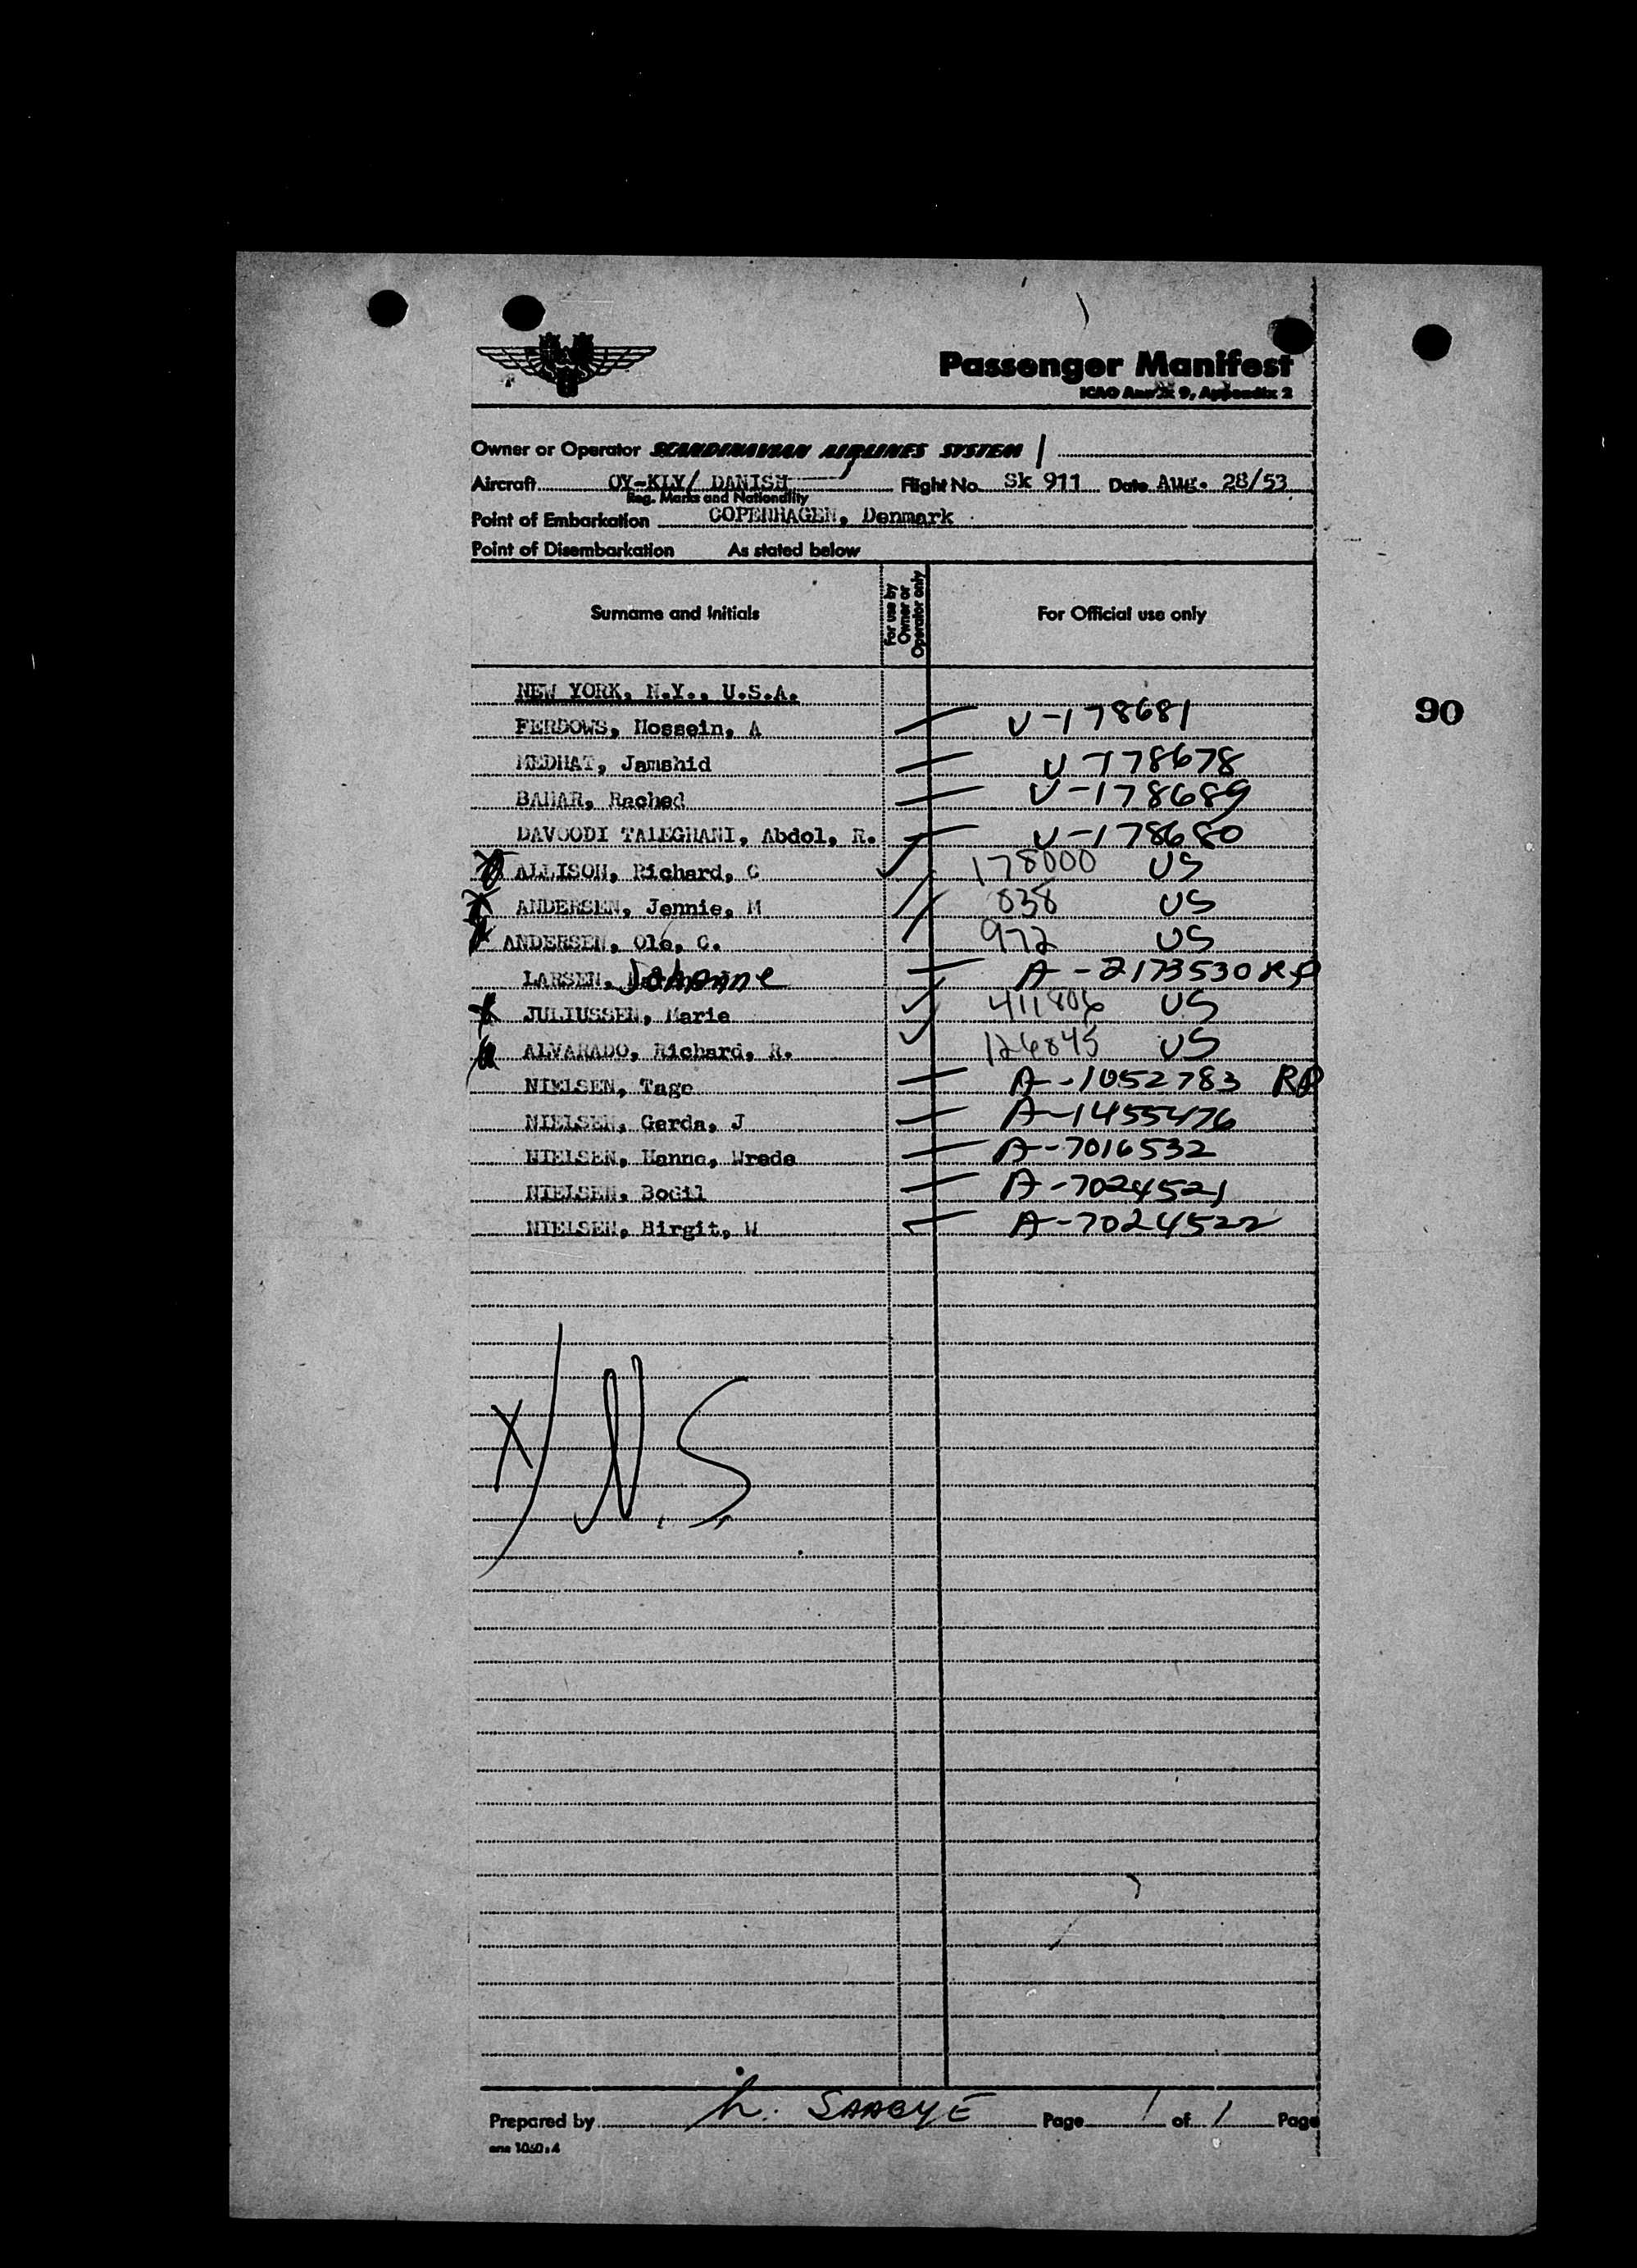 Passenger Manifest
ICAO Annex 9, Appendix 2
Owner or Operator SCANDINAVIAN AIRLINES SYSTEM
Aircraft OY-KLY/ DANISH Flight No. Sk 911 Date Aug. 28/53
Reg. Marks and Nationality
Point of Embarkation COPENHAGEN, Denmark
Point of Disembarkation As stated below
Surname and Initials For use by Owner or Operator only For Official use only
NEW YORK, N.Y., U.S.A.
90
FERDOWS, Hossein, A V-178681
MEDHAT, Jamshid V-178678
BAHAR, Rached V-178689
DAVOODI TALEGHANI, Abdol, R. V-178680
ALLISON, Richard, C 178000 US
ANDERSEN, Jennie, M 838 US
ANDERSEN, Ole, C. 972 US
LARSEN, Johanne A-2173530 RP
JULIUSSEN, Marie 411806 US
ALVARADO, Richard, R. 126845 US
NIELSEN, Tage A-1052783 RP
NIELSEN, Gerda, J A-1455476
NIELSEN, Hanne, Wrede A-7016532
NIELSEN, Bodil A-7024521
NIELSEN, Birgit, W A-7024522
X/ U.S.
Prepared by h. SAABYE Page 1 of 1 Page